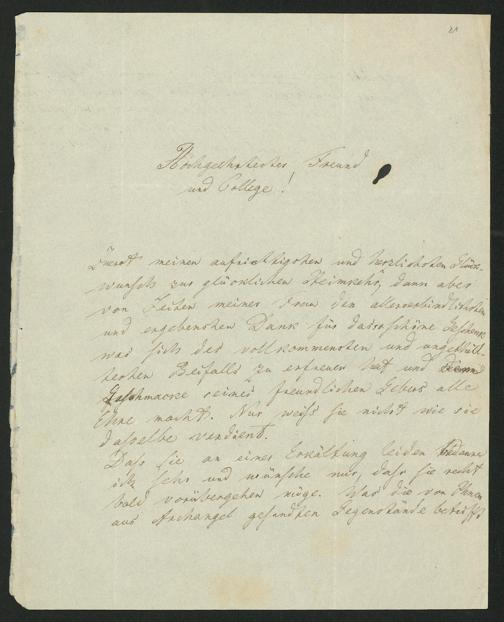 Höchgeehrtester Freund
und College!
Zuerst meinen aufrichtigsten und herzlichsten Glück-
wunsch zur glücklichen Heimkehr, dann aber
von Seiten meiner Frau den allerverbindlichsten
und ergebensten Dank für das schöne Geschenk
was sich des vollkommensten und ungetheil-
testen Beifalls zu erfreuen hat und
Geschmacke seines freundlichen Gebers alle
Ehre macht. Nur weiß sie nicht wie sie
dasselbe verdient.
Daß sie an einer Erkältung leiden bedaure
ich sehr und wünsche nur, daß sie recht
bald vorübergehen möge. Was die von Ihnen
aus Archangel gesandten Gegenstände betrifft